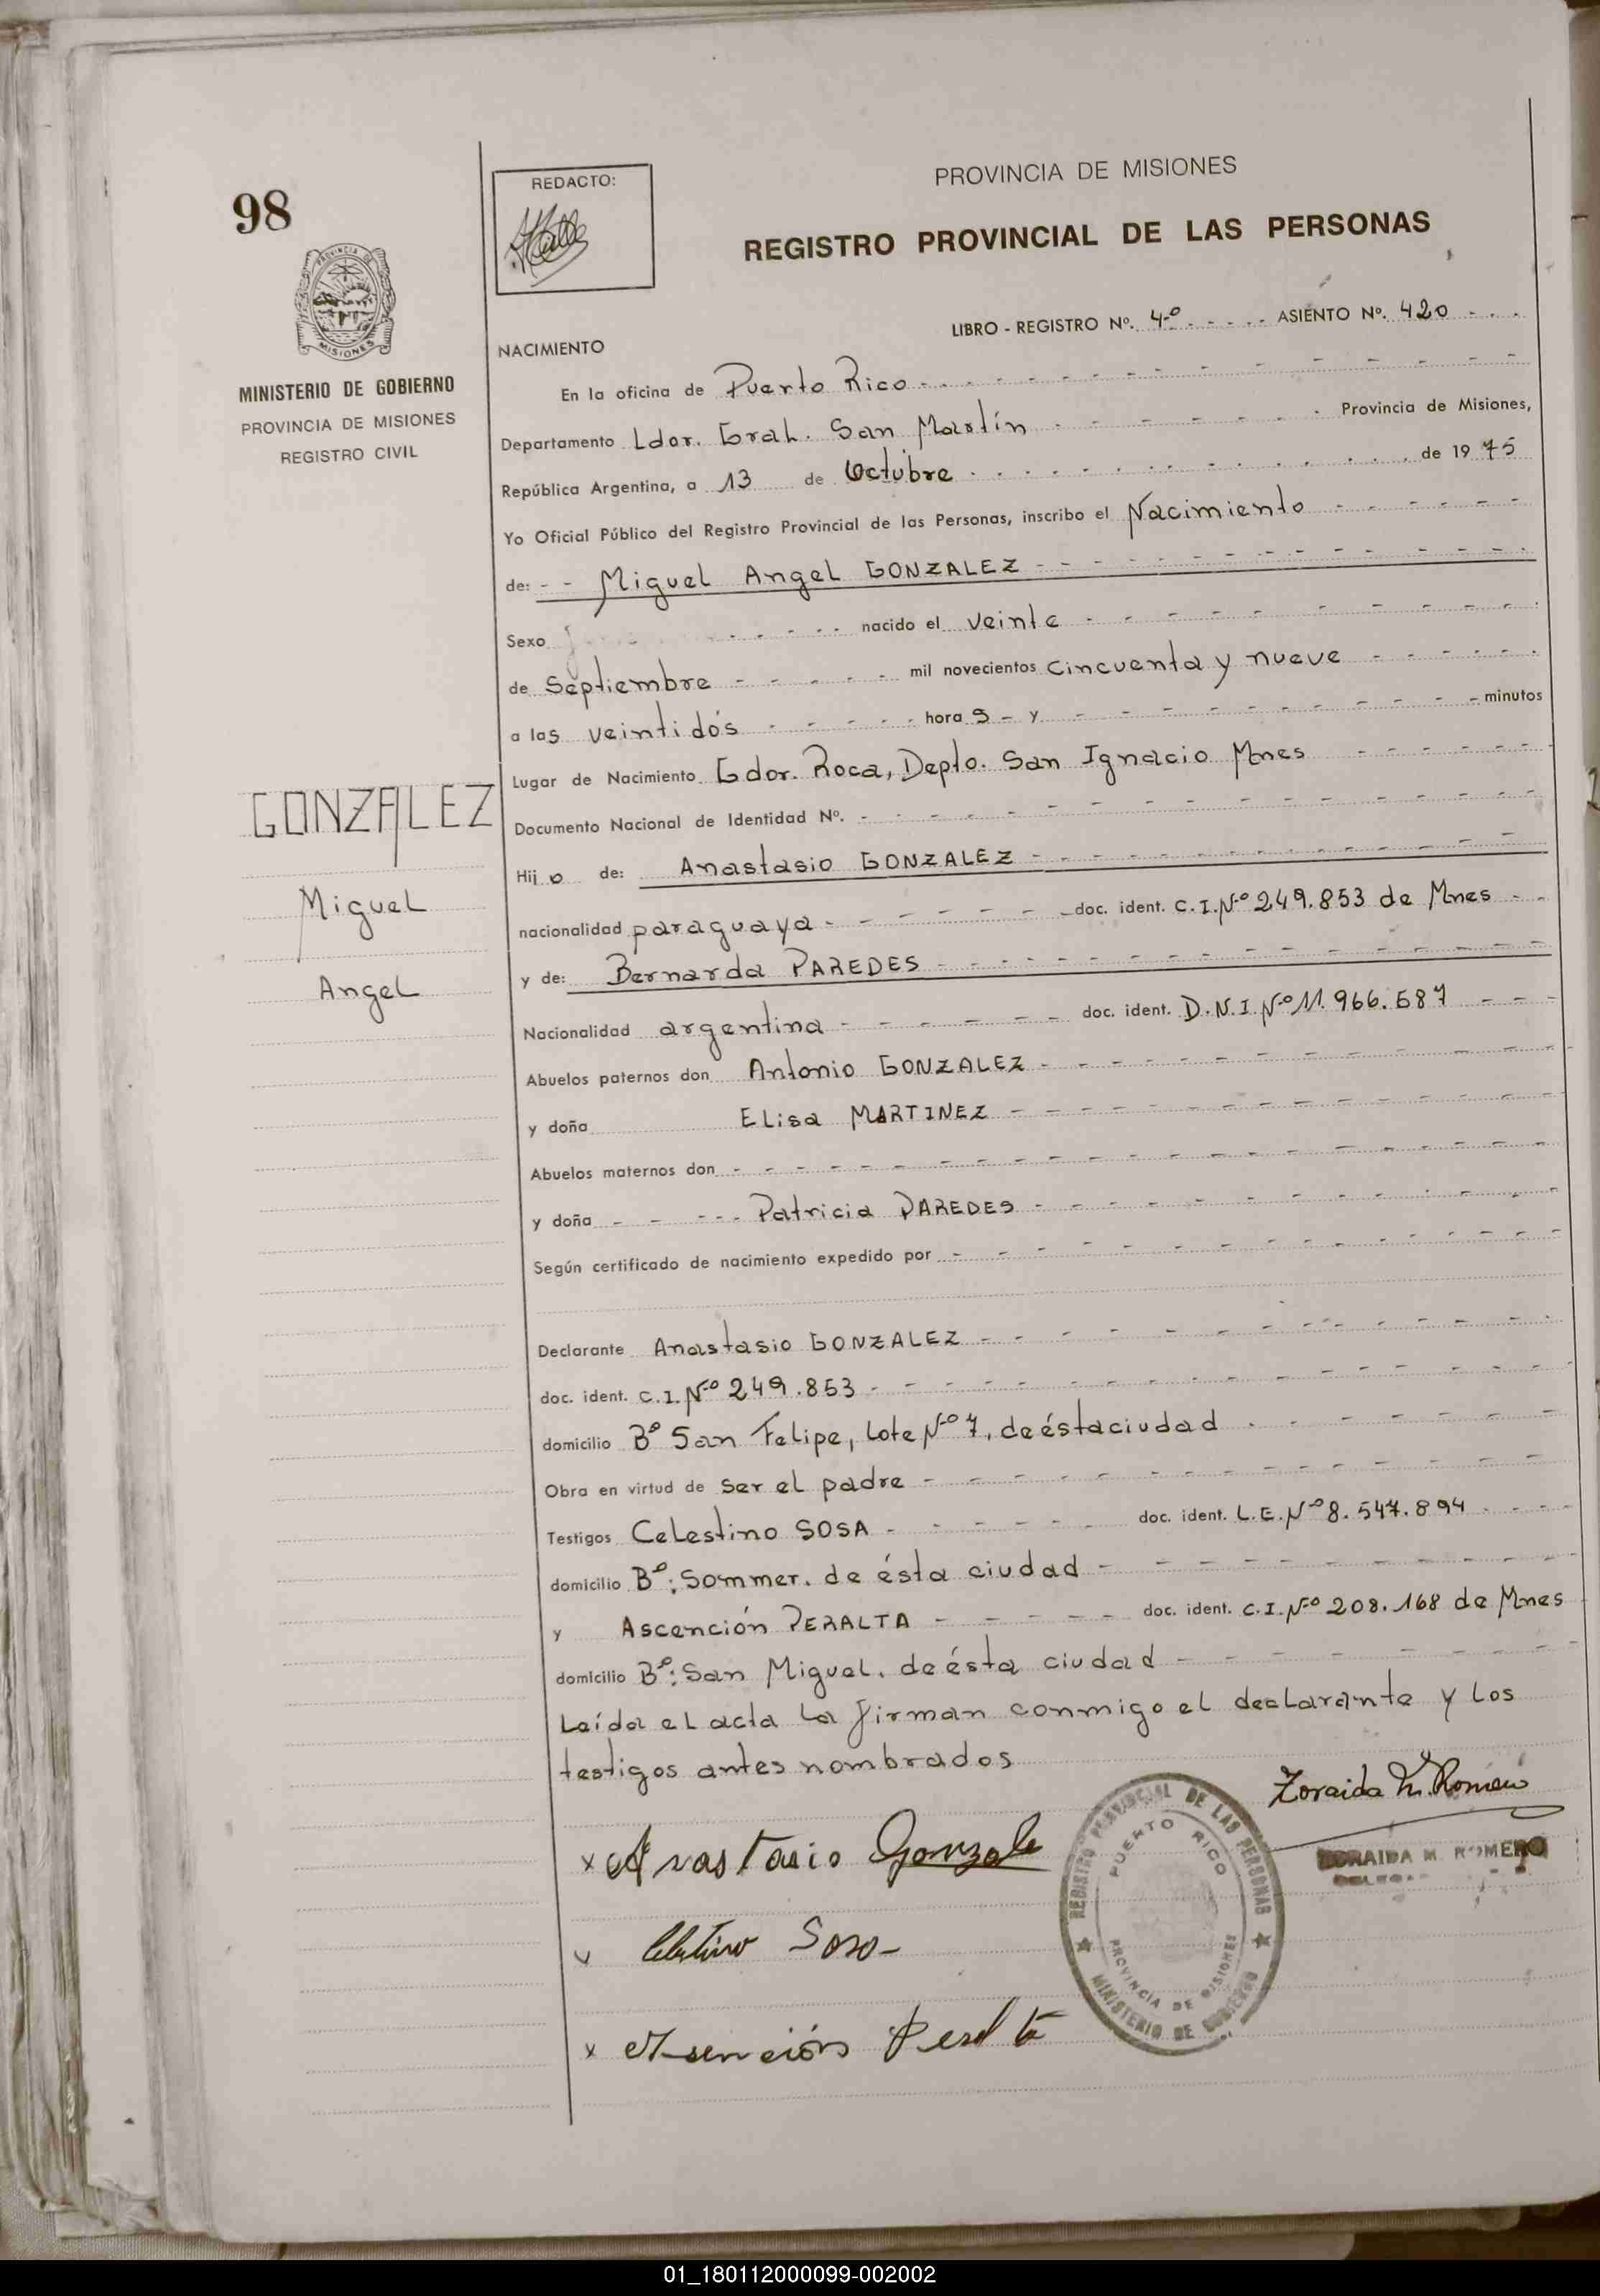 98
PROVINCIA DE
MISIONES
MINISTERIO DE GOBIERNO
PROVINCIA DE MISIONES
REGISTRO CIVIL
GONZALEZ
Miguel
Angel
REDACTO:
PROVINCIA DE MISIONES
REGISTRO PROVINCIAL DE LAS PERSONAS
LIBRO - REGISTRO Nº. 4º ASIENTO Nº. 420
NACIMIENTO
En la oficina de Puerto Rico
Departamento Ldor. Gral. San Martín Provincia de Misiones,
República Argentina, a 13 de Octubre de 1975
Yo Oficial Público del Registro Provincial de las Personas, inscribo el Nacimiento
de: Miguel Angel GONZALEZ
Sexo nacido el veinte
de Septiembre mil novecientos cincuenta y nueve
a las veintidós horas y minutos
Lugar de Nacimiento Gdor. Roca, Depto. San Ignacio Mnes
Documento Nacional de Identidad Nº.
Hijo de: Anastasio GONZALEZ
nacionalidad paraguaya doc. ident. C.I.Nº 249.853 de Mnes
y de: Bernarda PAREDES
Nacionalidad argentina doc. ident. D.N.I.Nº 11.966.587
Abuelos paternos don Antonio GONZALEZ
y doña Elisa MARTINEZ
Abuelos maternos don
y doña Patricia PAREDES
Según certificado de nacimiento expedido por
Declarante Anastasio GONZALEZ
doc. ident. C.I.Nº 249.853
domicilio Bº San Felipe, lote Nº 7, de ésta ciudad
Obra en virtud de ser el padre
Testigos Celestino SOSA doc. ident. L.E.Nº 8.547.894
domicilio Bº: Sommer. de ésta ciudad
y Ascención PERALTA doc. ident. C.I.Nº 208.168 de Mnes
domicilio Bº: San Miguel. de ésta ciudad
Leída el acta la firman conmigo el declarante y los
testigos antes nombrados
Zoraida M. Romero
ZORAIDA M. ROMERO
x Anastasio Gonzale
Celestino Sosa
x Asención Peralta
REGISTRO PROVINCIAL DE LAS PERSONAS
PUERTO RICO
PROVINCIA DE MISIONES
MINISTERIO DE GOBIERNO
01_180112000099-002002